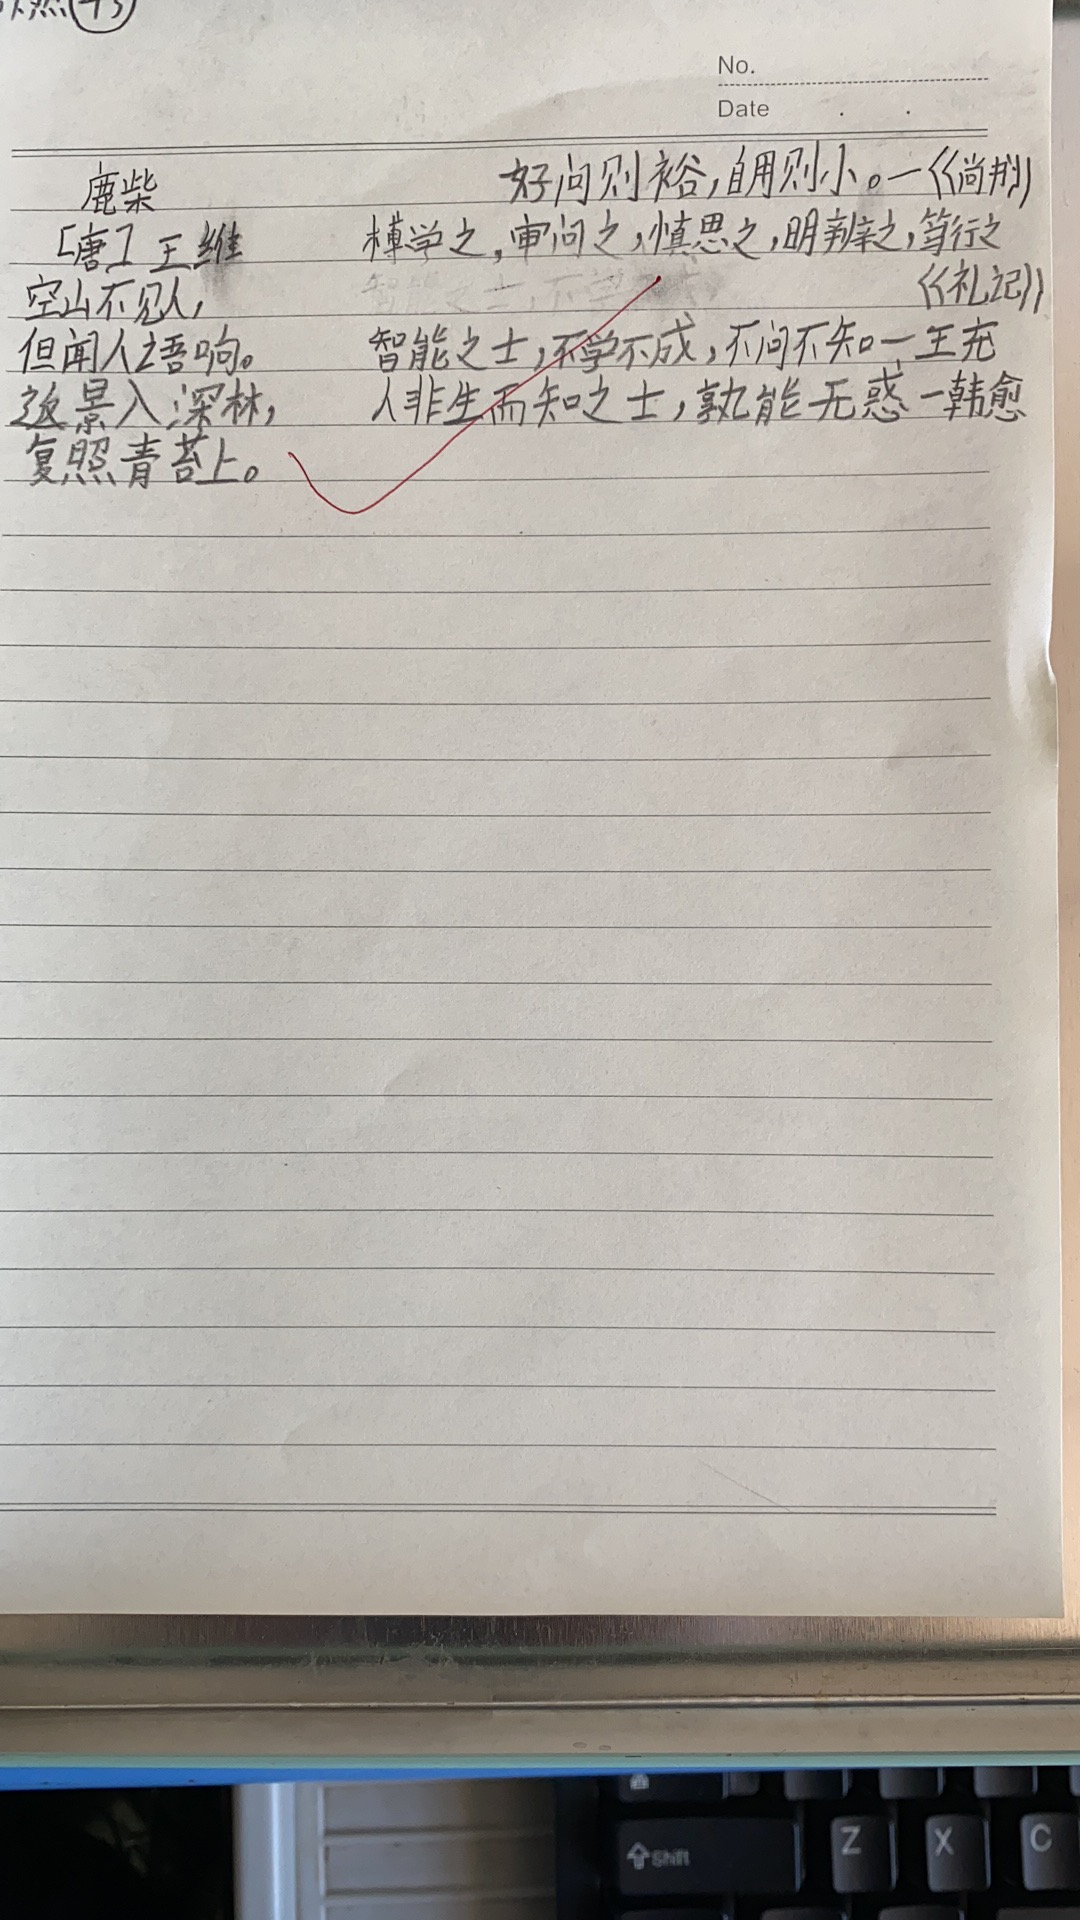 No.
Date
鹿柴
[唐] 王维
空山不见人,
但闻人语响。
返景入深林,
复照青苔上。
好问则裕,自用则小。—《尚书》
博学之,审问之,慎思之,明辨之,笃行之
《礼记》
智能之士,不学不成,不问不知—王充
人非生而知之士,孰能无惑—韩愈
Shift
Z
X
C